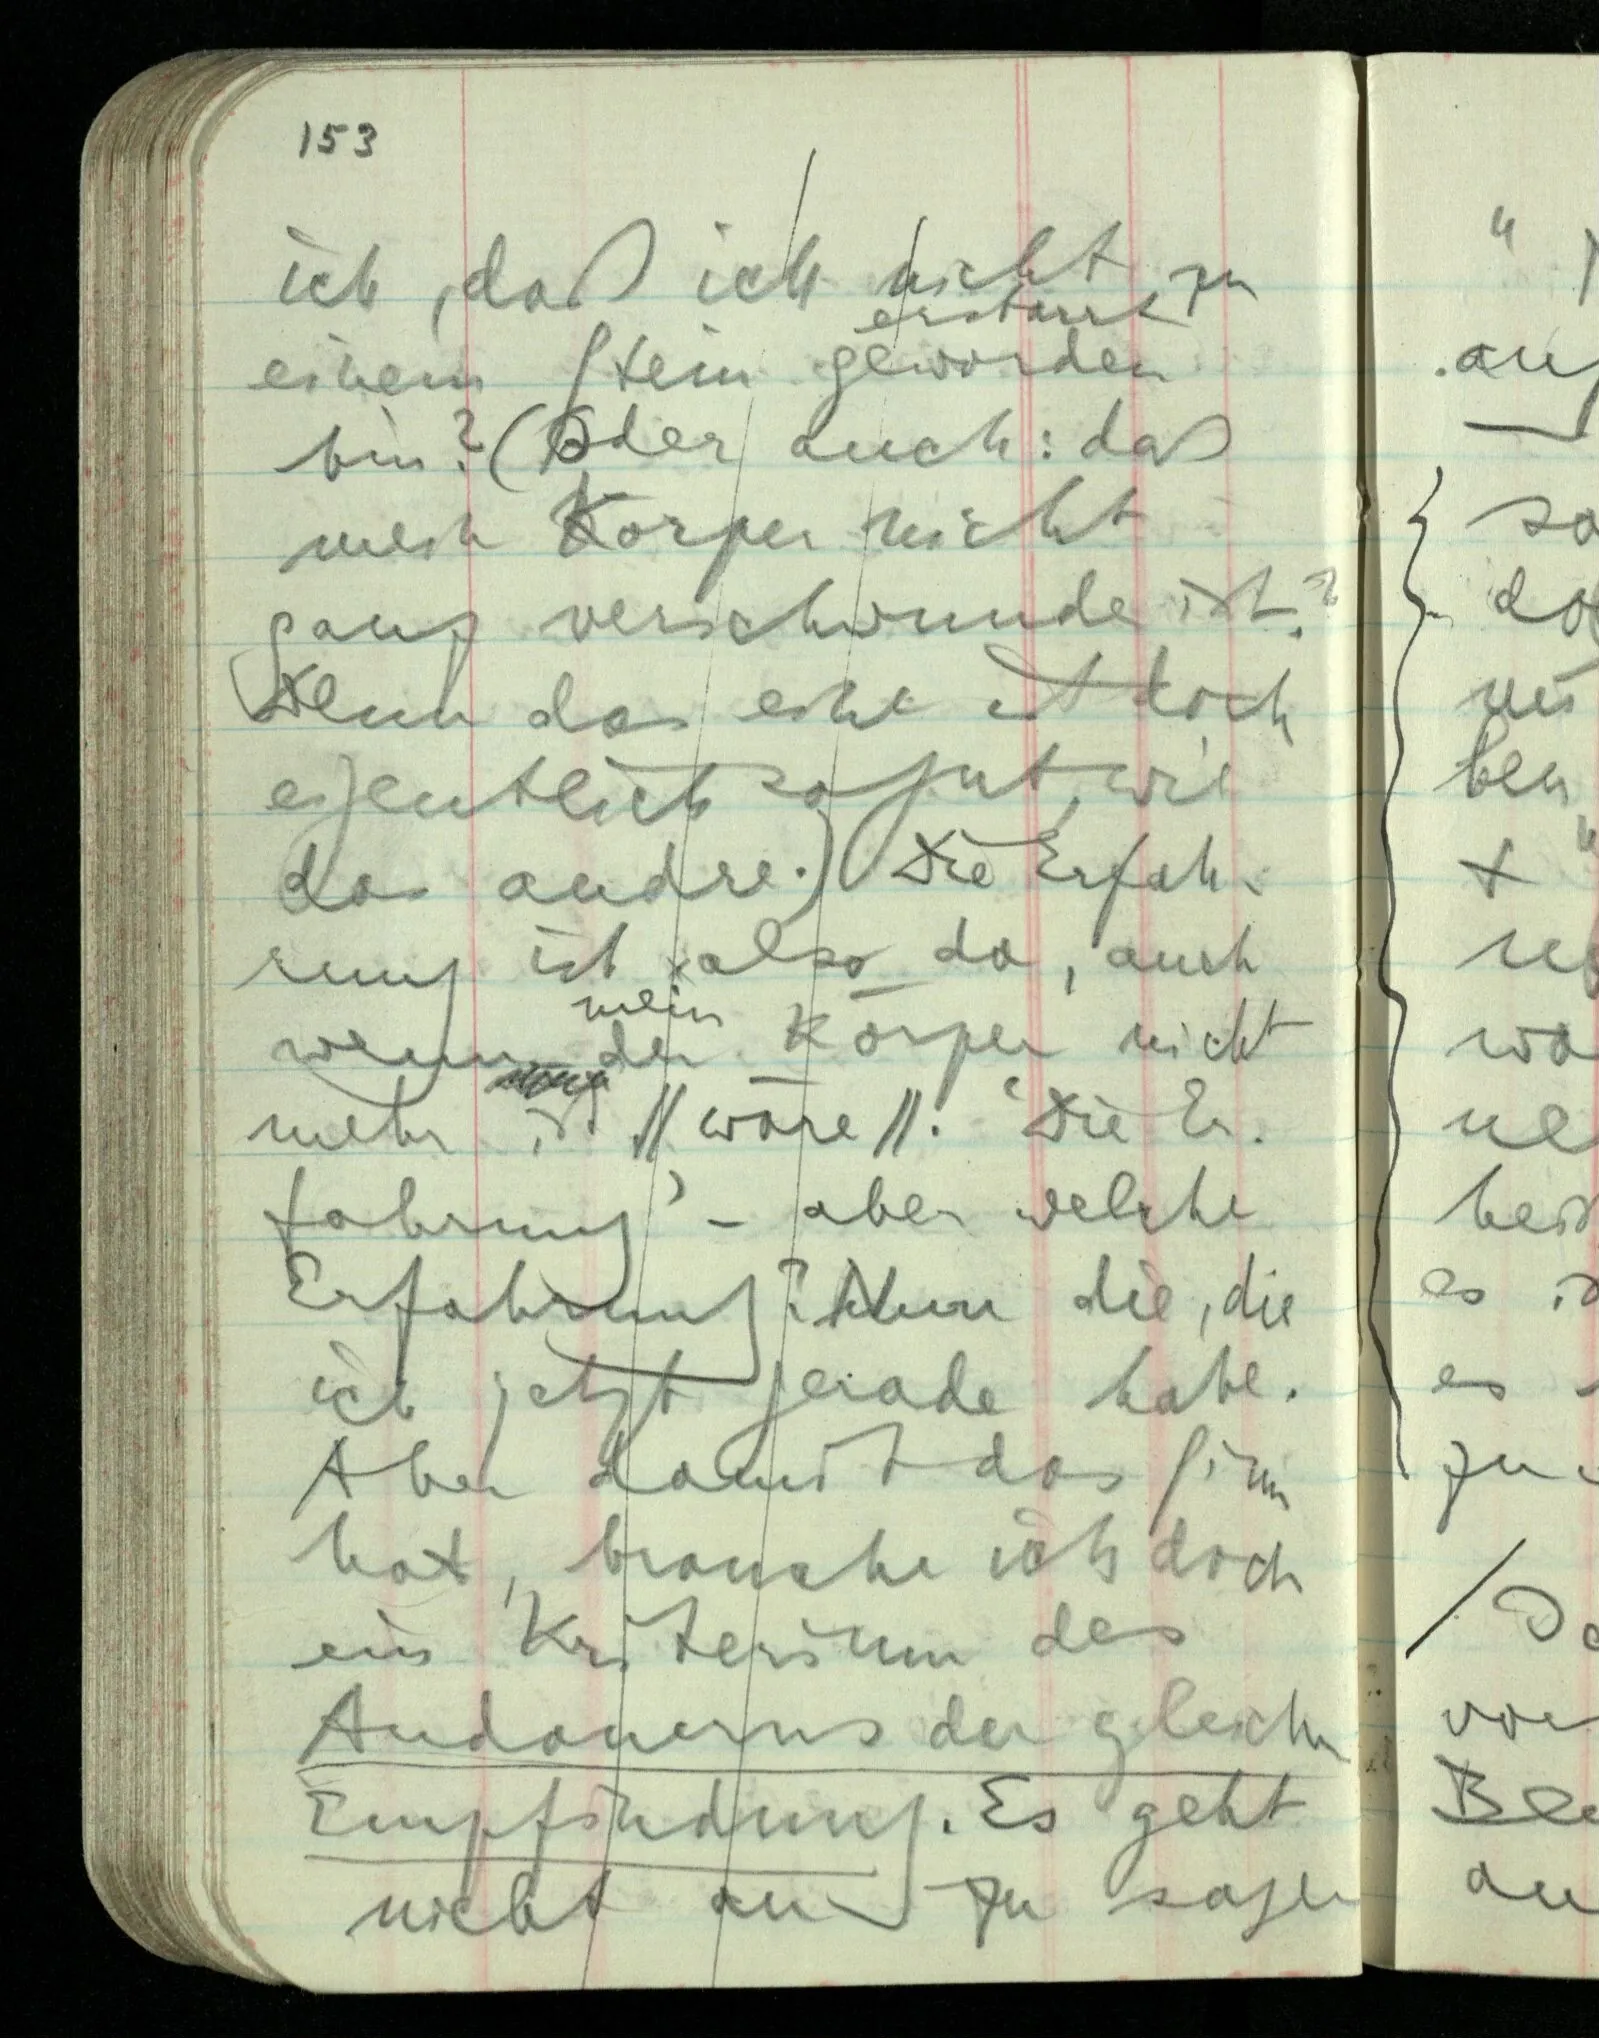 153
ich, daß ich nicht zu
erstarrt
einem Stein geworden
bin? (Oder auch: daß
mein Körper nicht
ganz verschwunde ist?
Denn das eine ist doch
eigentlich so gut, wie
das andre.) Die Erfah-
rung ist also da, auch
mein
wenn der Körper nicht
mehr ist // wäre //. ‘Die Er-
fahrung’ – aber welche
Erfahrung? Nun die, die
ich jetzt gerade habe.
Aber damit das Sinn
hat, brauche ich doch
ein Kriterium des
Andauerns der gleichen
Empfindung. Es geht
nicht an zu sagen
"
auf
so
da
ben
+ "
wa
ne
es
es
zu
/ De
vor
Be
au